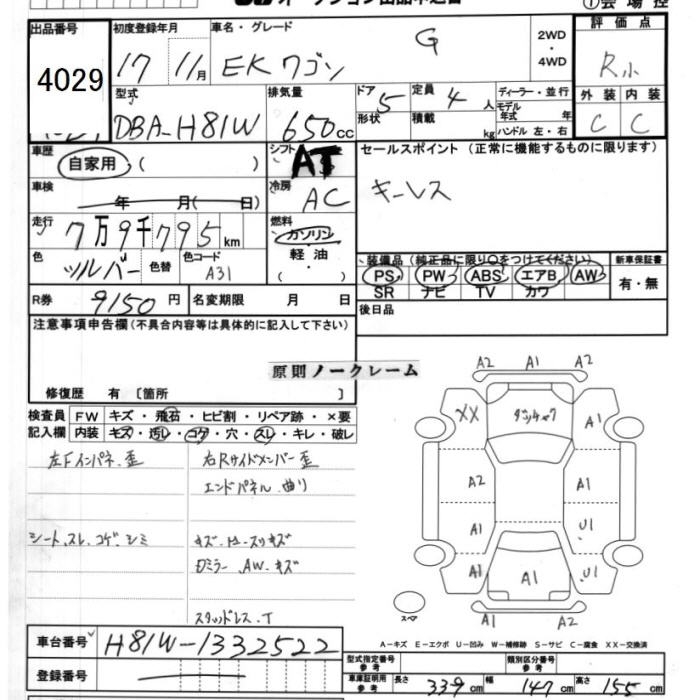 ①会場控
出品番号 初度登録年月 車名・グレード 評価点
4029 17 11月 EKワゴン G 2WD・4WD R小
型式 排気量 ドア 定員 ディーラー・並行 外装 内装
DBA-H81W 650cc 5 4人 モデル年式 年 C C
形状 積載 kg ハンドル 左・右
車歴 シフト セールスポイント (正常に機能するものに限ります)
自家用 ( ) AT キーレス
車検 年 月( 日) 冷房 AC
走行 7万9千795km 燃料 ガソリン・軽油・( )
色 シルバー 色替 色コード A31
装備品 (純正品に限り○をつけてください) 新車保証書
PS PW ABS エアB AW 有・無
SR ナビ TV カワ
R券 9150円 名変期限 月 日 後日品
注意事項申告欄(不具合内容等は具体的に記入して下さい)
原則ノークレーム
修復歴 有 [箇所 ]
検査員 FW キズ・飛石・ヒビ割・リペア跡・×要
記入欄 内装 キズ・汚レ・コゲ・穴・スレ・キレ・破レ
左Fインパネ.歪 右Rサイドメンバー歪
エンドパネル.曲り
シート.スレ.コゲ.シミ キズ.スリキズ
ミラー.AW.キズ
スタッドレス.T
A2 A1 A2
XX A1
A2 A1
A1 U1
A1 A1 U1
A1 A2
スペア
A-キズ E-エクボ U-凹み W-補修跡 S-サビ C-腐食 XX-交換済
車台番号 H81W-1332522
登録番号
型式指定番号参考 類別区分番号参考
車庫証明用参考 長さ 339cm 幅 147cm 高さ 155cm